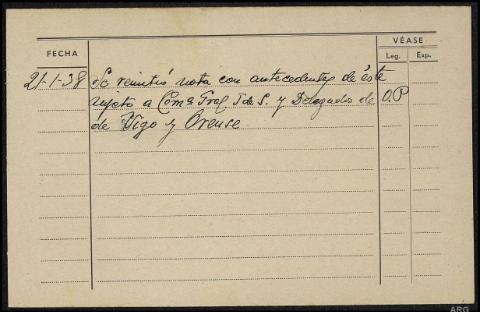 VÉASE
FECHA
Leg. Exp.
21-1-38 Se remitió nota con antecedentes de éste
sujeto a Comª Gral I de S. y Delegados de O.P
de Vigo y Orense
ARG